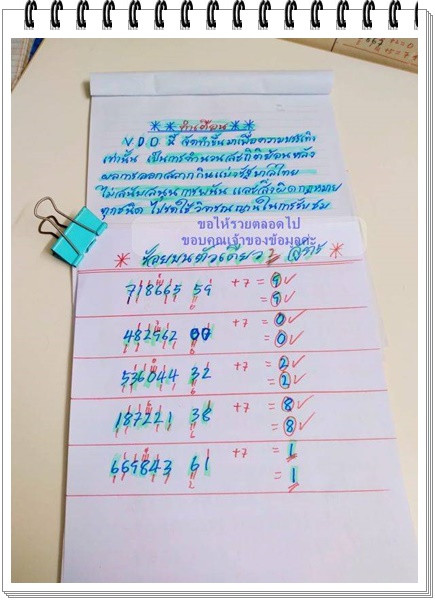 ** คำเตือน **
VDO นี้ จัดทำขึ้นมาเพื่อความบันเทิง
เท่านั้น เป็นการคำนวนสถิติย้อนหลัง
ผลการออกสลากกินแบ่งรัฐบาลไทย
ไม่สนับสนุนการพนัน และสิ่งผิดกฎหมาย
ทุกชนิด โปรดใช้วิจารณญานในการรับชม
ขอให้รวยตลอดไป
ขอบคุณเจ้าของข้อมูลค่ะ
* ร้อยบนตัวเดียว 2 สูตร *
718665 59 +7 = 9 ✓
= 9 ✓
482962 00 +7 = 0 ✓
= 0 ✓
536044 32 +7 = 2 ✓
= 2 ✓
187221 38 +7 = 8 ✓
= 8 ✓
669843 61 +7 = 1
= 1